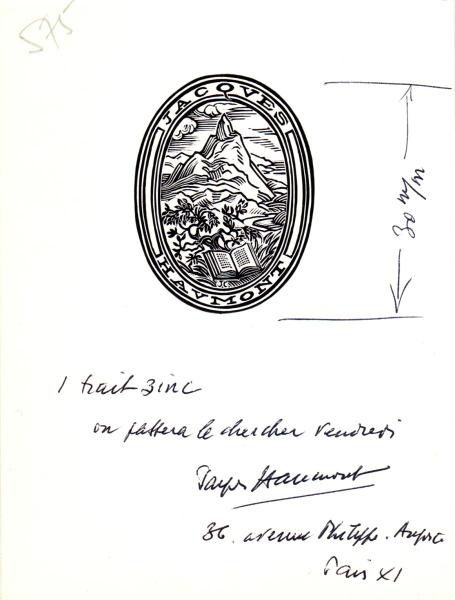 575
JACQVES
HAVMONT
30 m/m
1 trait zinc
on passera le chercher vendredi
Jacques Haumont
36. avenue Philippe. Auguste
Paris XI